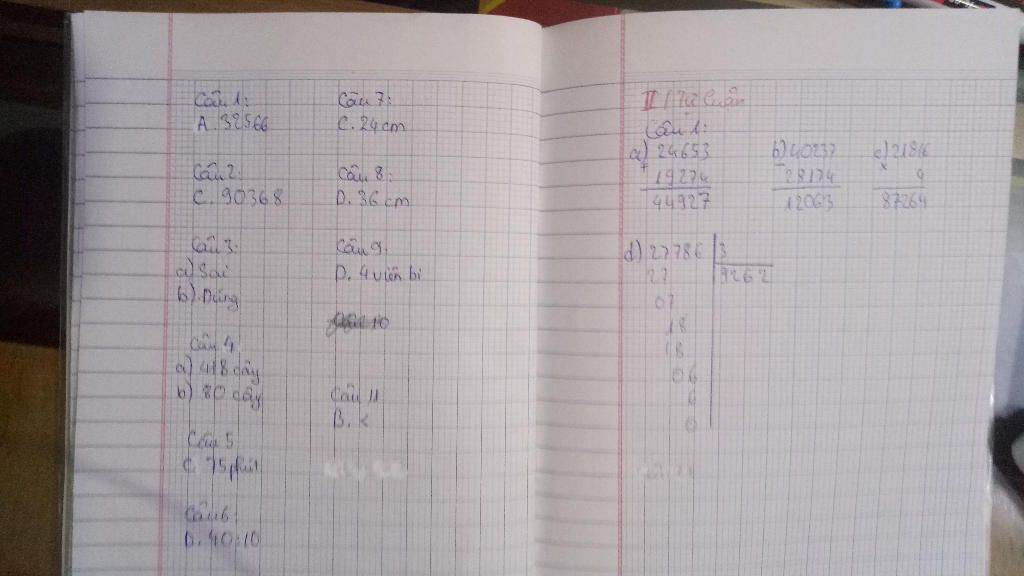 Câu 1:
A. 32566
Câu 2:
C. 90368
Câu 3:
a) Sai
b) Đúng
Câu 4:
a) 418 cây
b) 80 cây
Câu 5
C. 75 phút
Câu 6:
D. 40:10
Câu 7:
C. 24cm
Câu 8:
D. 36cm
Câu 9:
D. 4 viên bi
Câu 11
B. <
II / Tự luận
Câu 1:
a) 24653
+
19274
44927
b) 40237
-
28174
12063
c) 21816
x
9
87264
d) 27786 3
27 9262
07
18
18
06
6
0